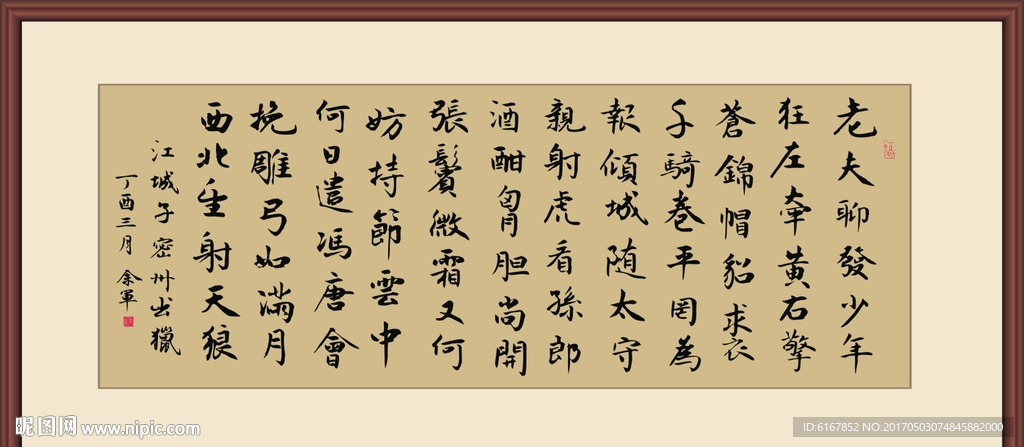 老夫聊發少年
狂左牽黄右擎
蒼錦帽貂裘
千騎卷平岡為
報傾城随太守
親射虎看孫郎
酒酣胷胆尚開
張鬢微霜又何
妨持節雲中
何日遣馮唐會
挽雕弓如滿月
西北望射天狼
江城子密州出獵
丁酉三月 余軍
昵图网 www.nipic.com
ID:6167852 NO:20170503074845882000